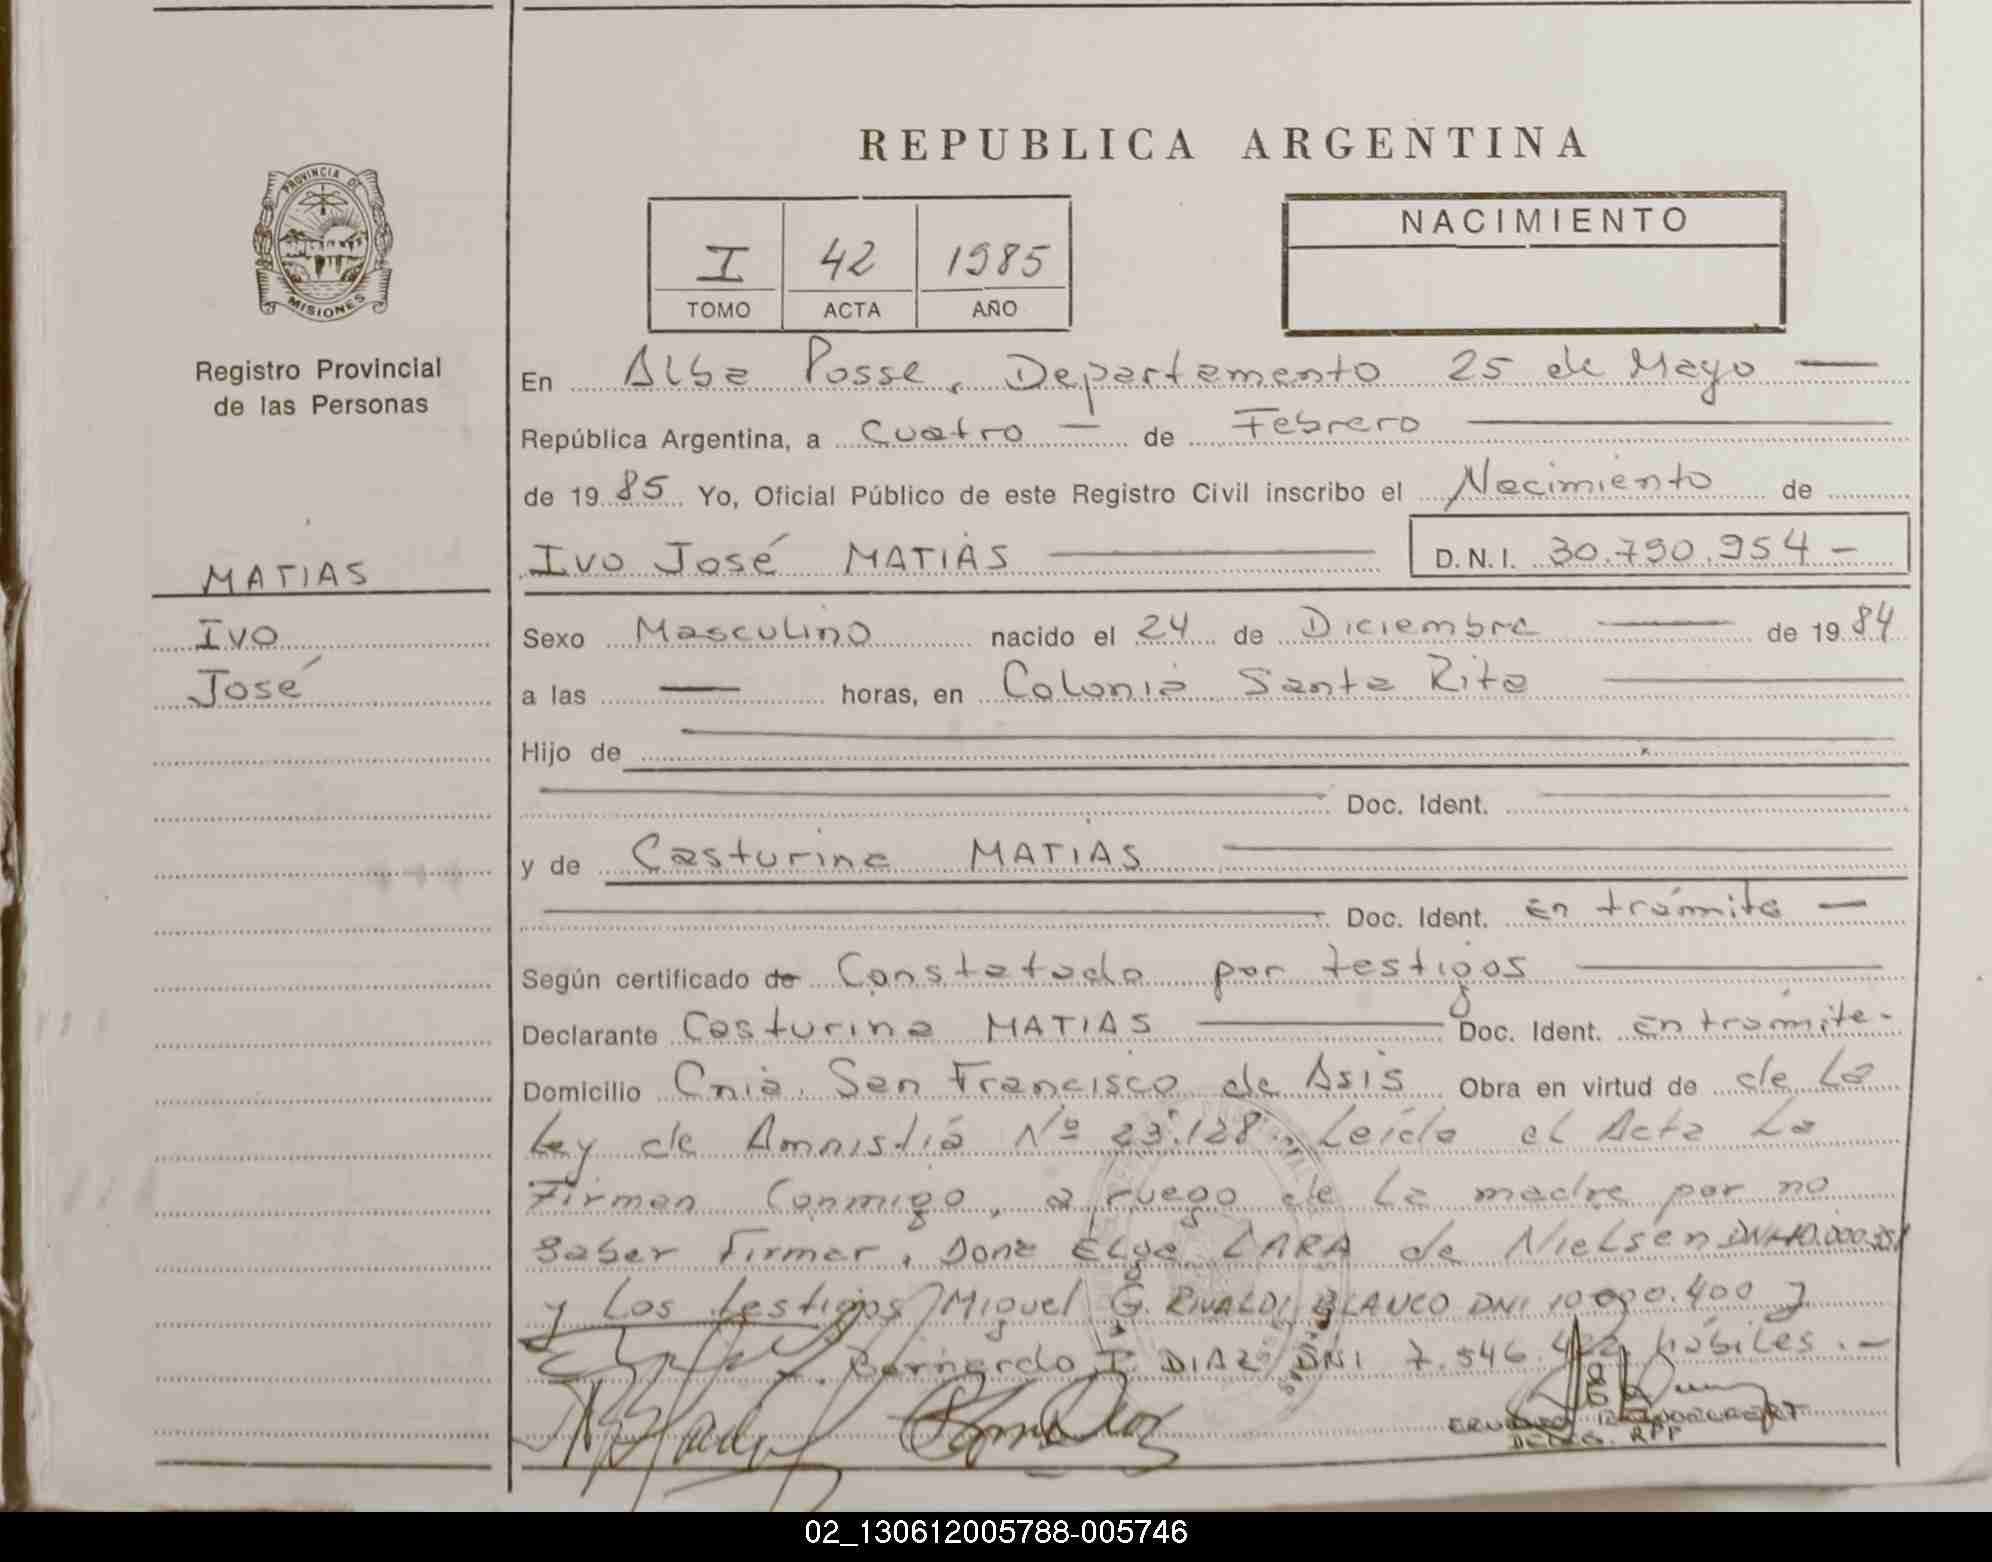 REPUBLICA ARGENTINA
PROVINCIA DE
MISIONES
Registro Provincial
de las Personas
I 42 1985
TOMO ACTA AÑO
NACIMIENTO
MATIAS
Ivo
José
En Alba Posse, Departamento 25 de Mayo —
República Argentina, a Cuatro — de Febrero —
de 1985 Yo, Oficial Público de este Registro Civil inscribo el Nacimiento de
Ivo José MATIAS — D.N.I. 30.790.954 —
Sexo Masculino nacido el 24 de Diciembre — de 1984
a las — horas, en Colonia Santa Rita —
Hijo de —
— Doc. Ident. —
y de Casturina MATIAS —
— Doc. Ident. En trámite —
Según certificado de Constatado por testigos —
Declarante Casturina MATIAS — Doc. Ident. En trámite-
Domicilio Cnia. San Francisco de Asis Obra en virtud de de La
Ley de Amnistía Nº 23.128. Leída el Acta La
Firman Conmigo, a ruego de La madre por no
Saber Firmar, Doña Elga LARA de Nielsen DNI
y Los testigos Miguel G. RIVALDI BLANCO DNI 10.000.400 y
Bernardo I. DIAZ DNI 7.546.422 hábiles.—
DELEG. RPP
02_130612005788-005746